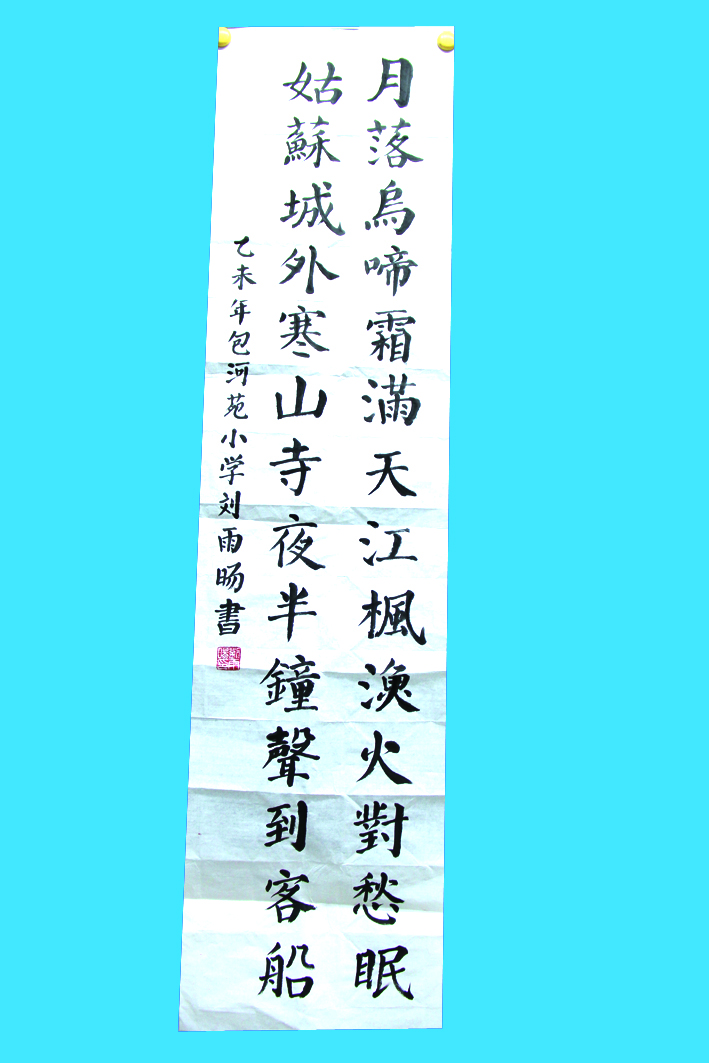 月落烏啼霜滿天江楓漁火對愁眠
姑蘇城外寒山寺夜半鐘聲到客船
乙未年包河苑小学刘雨旸書